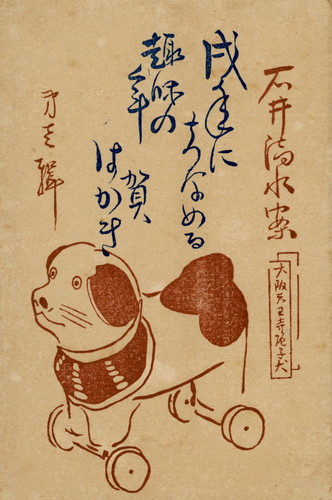 石井清水案
大阪天王寺張子犬
戌年に
ちなめる
趣味の
年賀
はがき